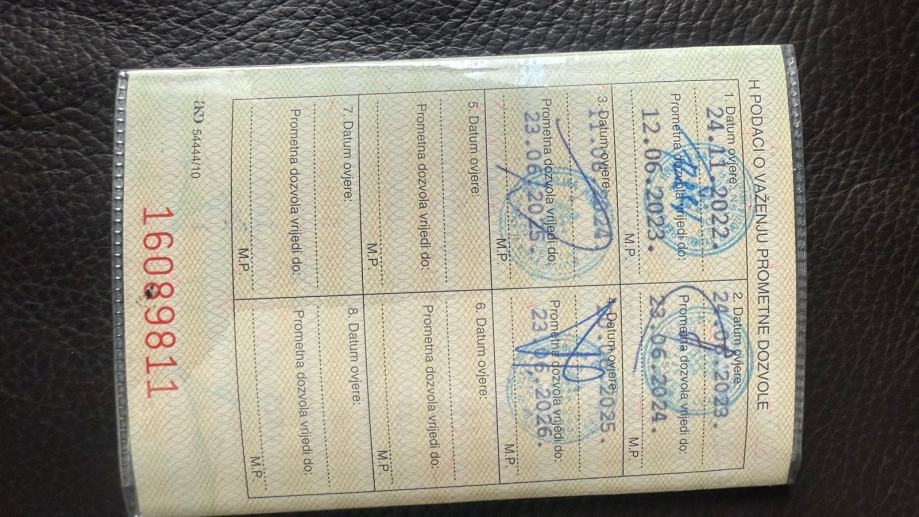 H PODACI O VAŽENJU PROMETNE DOZVOLE
1. Datum ovjere:
24.11.2022.
Prometna dozvola vrijedi do:
12.06.2023.
M.P.
2. Datum ovjere:
2023.
Prometna dozvola vrijedi do:
23.06.2024.
M.P.
3. Datum ovjere:
Prometna dozvola vrijedi do:
23.06.2025.
M.P.
4. Datum ovjere:
2025.
Prometna dozvola vrijedi do:
23.06.2026.
M.P.
5. Datum ovjere:
Prometna dozvola vrijedi do:
M.P.
6. Datum ovjere:
Prometna dozvola vrijedi do:
M.P.
7. Datum ovjere:
Prometna dozvola vrijedi do:
M.P.
8. Datum ovjere:
Prometna dozvola vrijedi do:
M.P.
54444/10
16089811